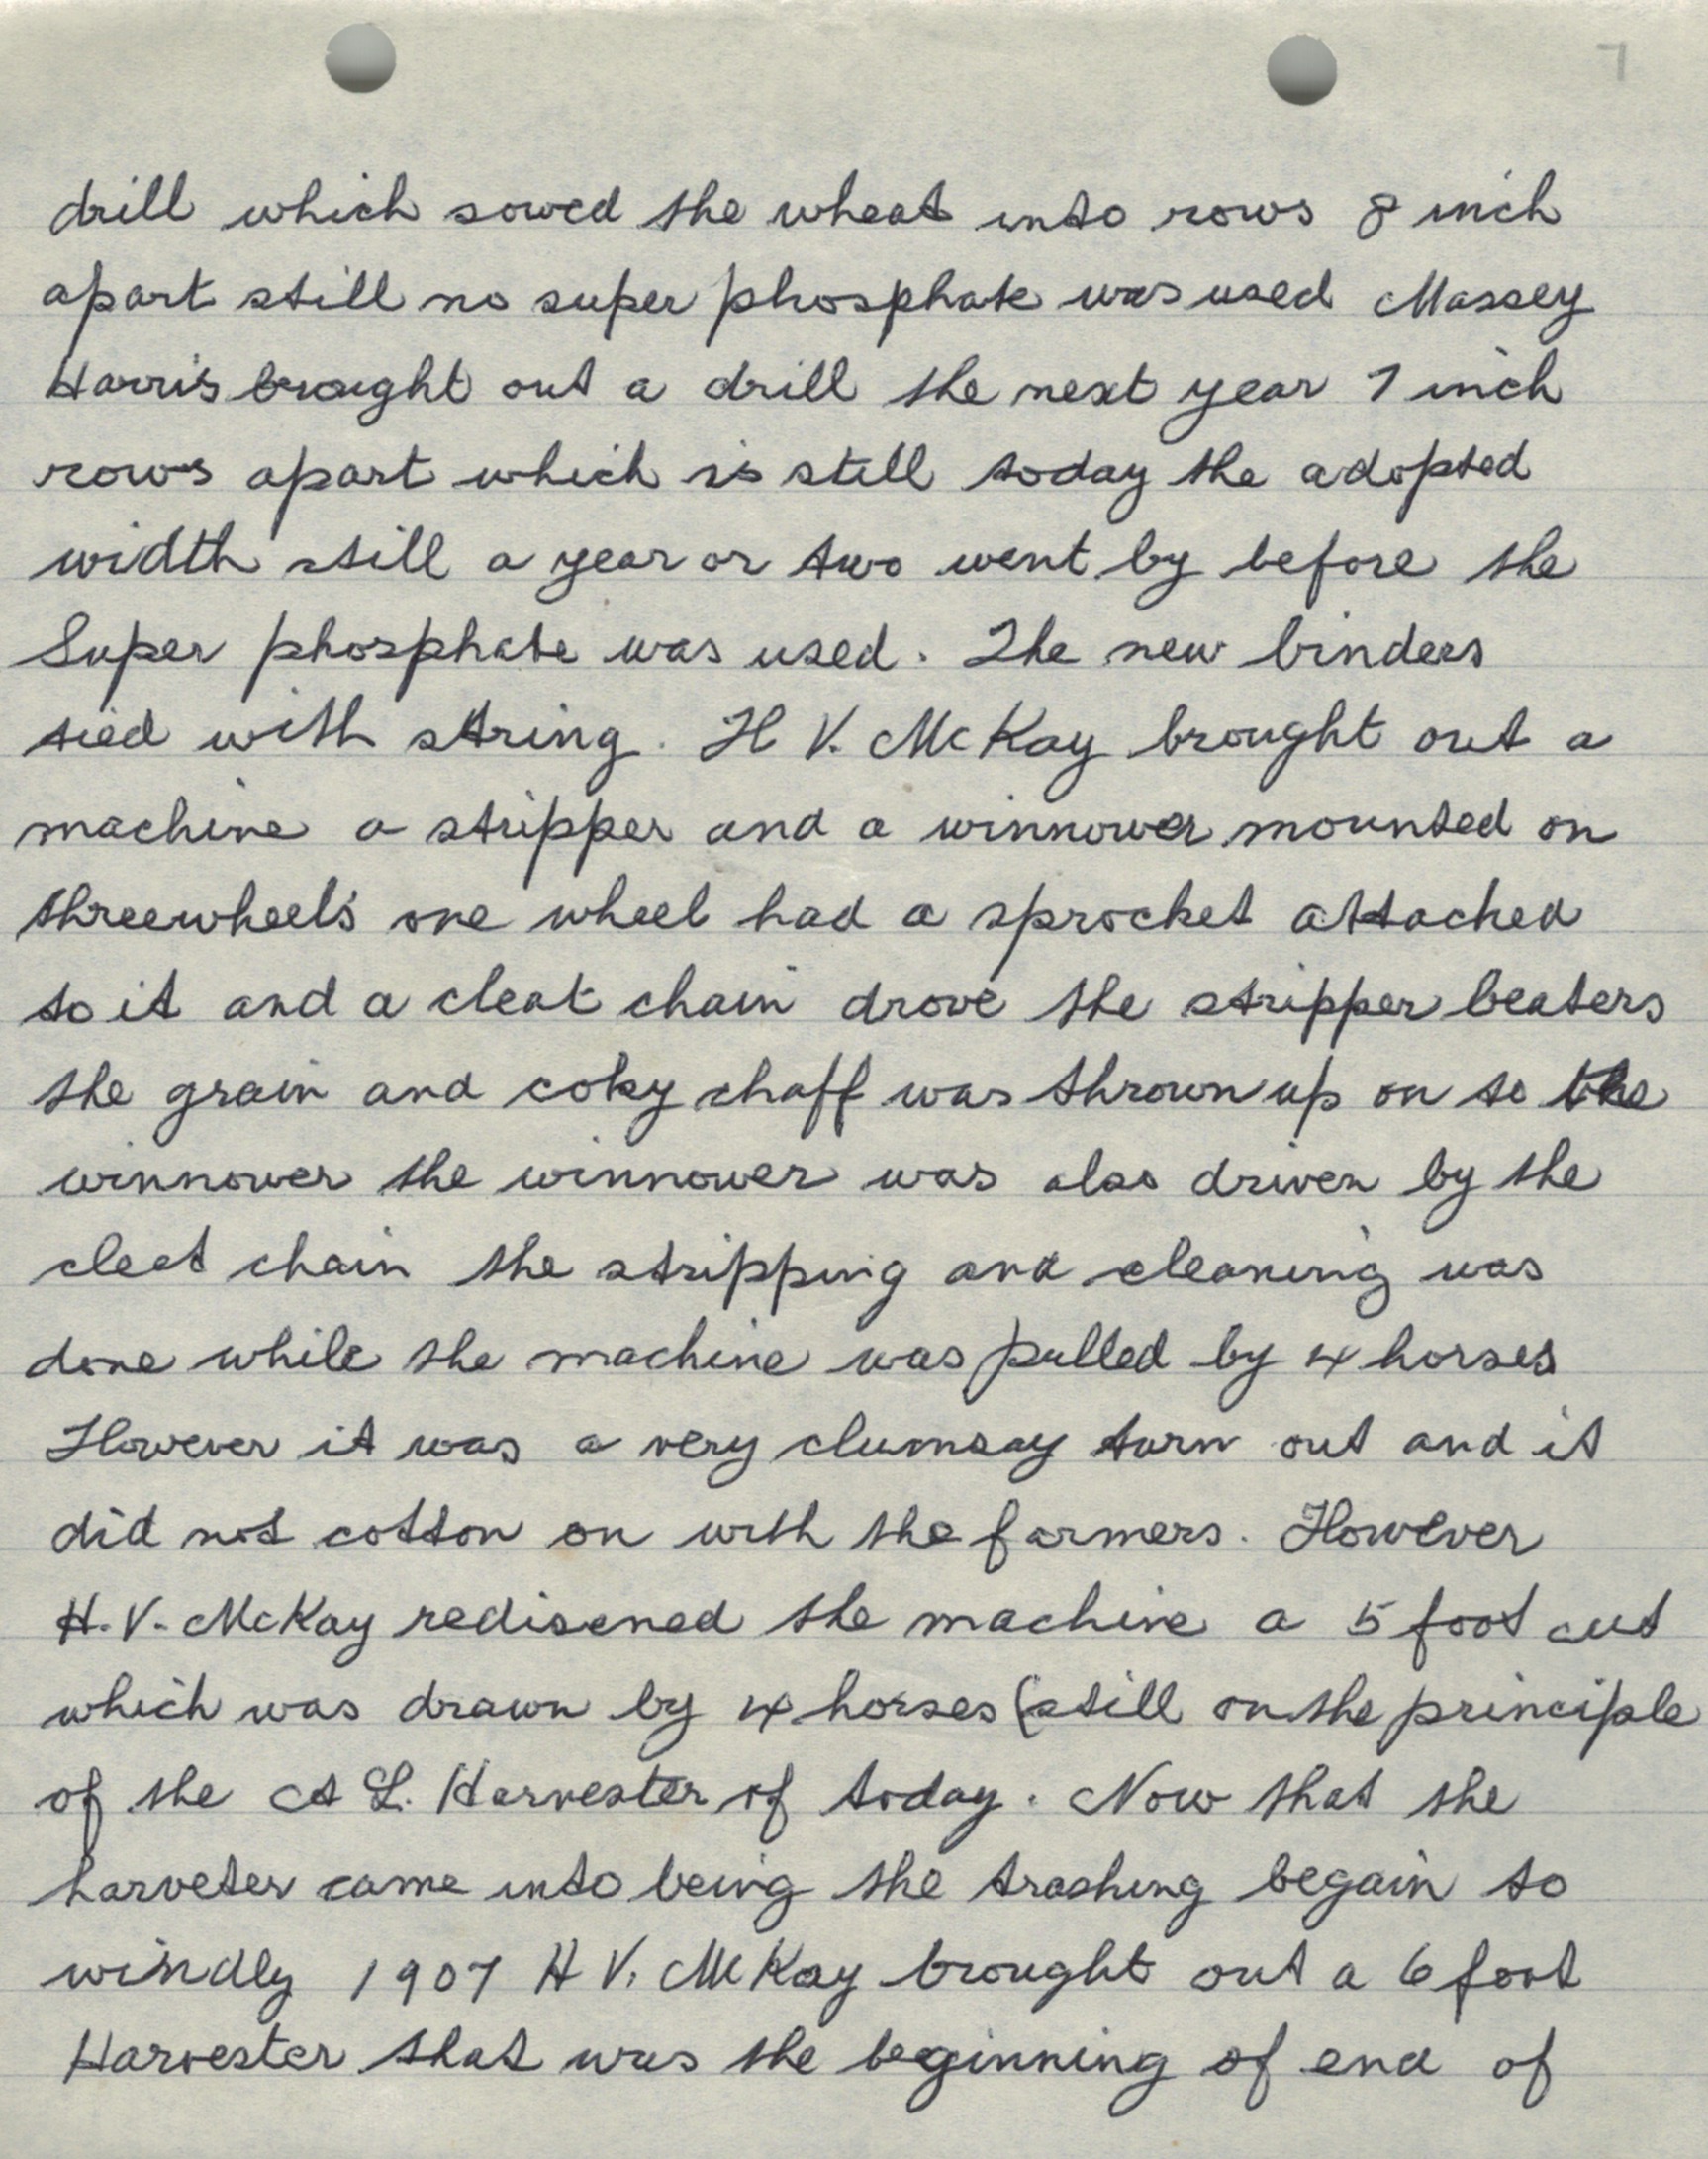 7
drill which sowed the wheat into rows 8 inch
apart still no super phosphate was used Massey
Harris brought out a drill the next year 7 inch
rows apart which is still today the adopted
width still a year or two went by before the
Super phosphate was used. The new binders
tied with string. H V. McKay brought out a
machine a stripper and a winnower mounted on
threewheels one wheel had a sprocket attached
to it and a cleat chain drove the stripper beaters
the grain and coky chaff was thrown up on to the
winnower the winnower was also driven by the
cleet chain the stripping and cleaning was
done while the machine was pulled by 4 horses
However it was a very clumsay turn out and it
did not cotton on with the farmers. However
H.V. McKay redisened the machine a 5 foot cut
which was drawn by 4 horses (still on the principle
of the A L. Harvester of today. Now that the
harveter came into being the trashing begain to
windly 1907 H V. McKay brought out a 6 foot
Harvester that was the beginning of end of